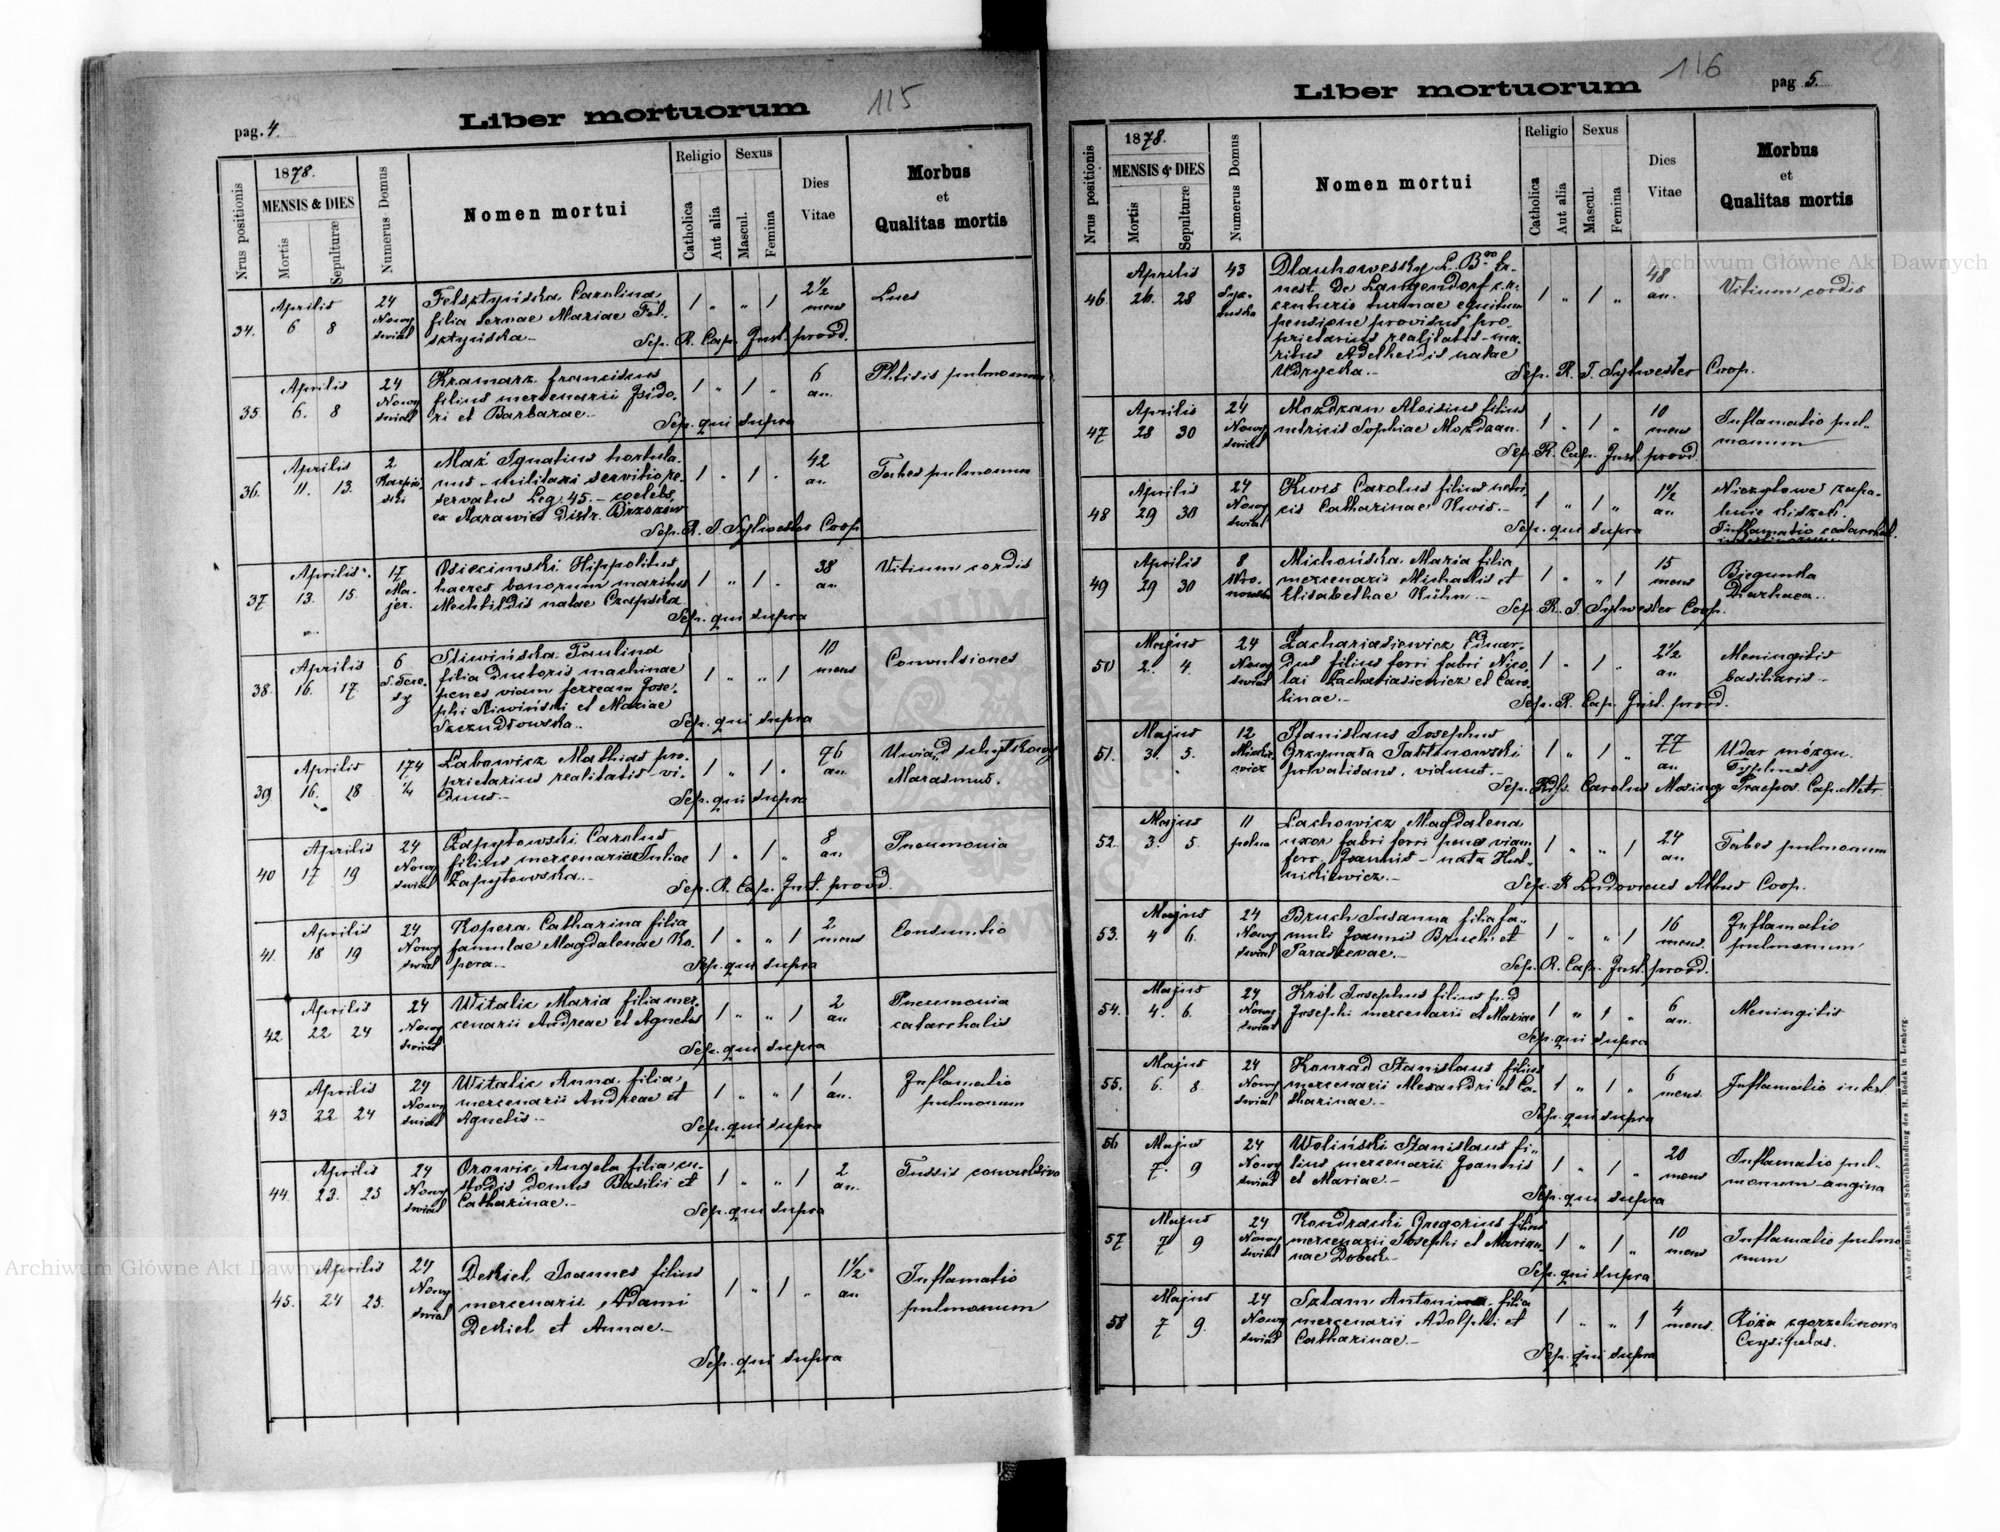 115
pag. 4.
Liber mortuorum
Nrus positionis
1878.
MENSIS & DIES
Mortis
Sepulturæ
Numerus Domus
Nomen mortui
Religio
Catholica
Aut alia
Sexus
Mascul.
Femina
Dies
Vitae
Morbus
et
Qualitas mortis
34.
Aprilis
6 8
24
Nowy
świat
Felsztyńska Carolina
filia servae Mariae Fel-
sztyńska.-
1 " " 1
2½
mens
Lues
Sep. R. Cap. Inst. provd.
35
Aprilis
6. 8
24
Nowy
świat
Kramarz franciscus
filius mercenarii Isido-
ri et Barbarae.-
1 " 1 "
6
an.
Phtisis pulmonum
Sep. qui supra
36.
Aprilis
11. 13.
2
Ignatius hortula-
nus - militari servitio re-
servatus Leg. 45. - coelebs,
ex Distr. Brzozów
1 " 1 "
42
an
Tabes pulmonum
Sep. R. J. Sylwester Coop.
37
Aprilis
13. 15.
17
Ma-
jer.
Osiecimski Hippolitus
haeres bonorum maritus
Mechtildis natae Czapska
1 " 1 "
38
an
Vitium cordis
Sep. qui supra
38.
Aprilis
16. 17.
6
S. Tere-
sy
Sliwińska Paulina
filia ductoris machinae
penes viam ferream Jose-
phi Sliwiński et Mariae
Szczudłowska..
1 " " 1
10
mens
Convulsiones
Sep. qui supra
39
Aprilis
16. 18
174
¼
Labowicz Mathias pro-
prietarius realitatis - vi-
duus.-
1 " 1 "
76
an
Uwiąd schyłkowy
Marasmus.
Sep. qui supra
40
Aprilis
17 19
24
Nowy
świat
Zapytowski Carolus
filius mercenariae Juliae
Zapytowska.-
1 " 1 "
8
an
Pneumonia
Sep. R. Cap. Inst. provd.
41.
Aprilis
18 19
24
Nowy
świat
Kopera Catharina filia
famulae Magdalenae Ko-
pera.-
1 " " 1
2
mens
Consumtio
Sep. qui supra
42
Aprilis
22 24
24
Nowy
świat
Witalic Maria filia mer-
cenarii Andreae et Agnetis
1 " " 1
2
an
Pneumonia
catarrhalis
Sep. qui supra
43
Aprilis
22 24
24
Nowy
świat
Witalic Anna filia
mercenarii Andreae et
Agnetis.-
1 " " 1
1
an.
Inflamatio
pulmonum
Sep. qui supra
44.
Aprilis
23. 25
24
Nowy
świat
Angela filia cu-
stodis domus Basilii et
Catharinae.-
1 " " 1
2
an.
Tussis convulsiva
Sep. qui supra
45.
Aprilis
24 25.
24
Nowy
świat
Deskiel Joannes filius
mercenarii Adami
Deskiel et Annae.-
1 " 1 "
1½
an
Inflamatio
pulmonum
Sep. qui supra
116
Liber mortuorum
pag 5.
Nrus positionis
1878.
MENSIS & DIES
Mortis
Sepulturæ
Numerus Domus
Nomen mortui
Religio
Catholica
Aut alia
Sexus
Mascul.
Femina
Dies
Vitae
Morbus
et
Qualitas mortis
46.
Aprilis
26. 28
43
Dlauhowessky L. B. Er-
nest De Langendorf
centurio turmae equitum
pensione provisus pro-
prietarius realitatis - ma-
ritus Adelheidis natae
Udrycka.-
1 " 1 "
48
an.
Vitium cordis
Sep. R. J. Sylwester Coop.
47
Aprilis
28 30
24
Nowy
świat
Mozdzan Aloisius filius
nutricis Sophiae Mozdzan.
1 " 1 "
10
mens
Inflamatio pul-
monum
Sep. R. Cap. Inst. provd.
48
Aprilis
29 30
24
Nowy
świat
Kwis Carolus filius nutri
cis Catharinae Kwis.-
1 " 1 "
1½
an
Nieżytowe zapa-
lenie kiszek.
Inflamatio catarrhal.
Sep. qui supra
49
Aprilis
29 30
8
Wro-
nowska
Michońska Maria filia
mercenarii Michaelis et
Elisabethae Kühn.-
1 " " 1
15
mens
Biegunka
Diarhaea..
Sep. R. J. Sylwester Coop.
50
Majus
2. 4.
24
Nowy
świat
Zachariasiewicz Eduar-
dus filius ferri fabri Nico-
lai Zachariasiewicz et Caro-
linae.-
1 " 1 "
2½
an
Meningitis
basilaris.-
Sep. R. Cap. Inst. provd.
51.
Majus
3. 5.
12
Mickie
wicz
Stanislaus Josephus
Grzymała Jabłonowski
privatisans, viduus.-
1 " 1 "
77
an
Udar mózgu.
Typhus
Sep. Carolus Mosing Praepos. Cap. Metr.
52.
Majus
3. 5.
11
pełna
Lachowicz Magdalena
uxor fabri ferri penes viam
ferr. Joannis - nata
1 " " 1
24
an
Tabes pulmonum
Sep. R. Ludovicus Coop.
53.
Majus
4 6.
24
Nowy
świat
Bruch Susanna filia fa-
muli Joannis Bruch et
Paraskevae.-
1 " " 1
16
mens.
Inflamatio
pulmonum
Sep. R. Cap. Inst. provd.
54.
Majus
4. 6.
24
Nowy
świat
Król Josephus filius
Josephi mercenarii et Mariae
1 " 1 "
6
an.
Meningitis
Sep. qui supra
55.
Majus
6. 8
24
Nowy
świat
Konrad Stanislaus filius
mercenarii Alexandri et Ca-
tharinae.-
1 " 1 "
6
mens.
Inflamatio intest.
Sep. qui supra
56
Majus
7. 9
24
Nowy
świat
Woliński Stanislaus fi-
lius mercenarii Joannis
et Mariae.-
1 " 1 "
20
mens
Inflamatio pul-
monum - angina
Sep. qui supra
57
Majus
7 9
24
Nowy
świat
Kondracki Gregorius filius
mercenarii Josephi et Marian-
nae
1 " 1 "
10
mens
Inflamatio pulmo
num
Sep. qui supra
58
Majus
7 9.
24
Nowy
świat
Szlam Antonina filia
mercenarii Adolphi et
Catharinae.-
1 " " 1
4
mens.
Róża zgorzelinowa
Erysipelas.
Sep. qui supra
Aus der Buch- und Schreibhandlung des H. Bodek in Lemberg.
Archiwum Główne Akt Dawnych
Archiwum Główne Akt Dawnych